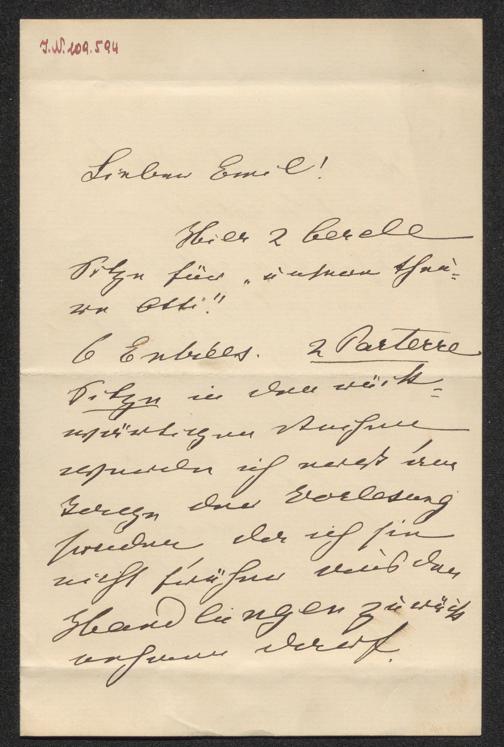 J.N. 109.594
Lieber Emil!
Hier 2 Cercle
Sitze für „unsere theu-
re Otti."
6 Entrées. 2 Parterre
Sitze in den rück-
wärtigen Reihen
werde ich noch im
Tage der Vorlesung
senden da ich sie
nicht früher aus den
Handlungen zurück
nehmen darf.